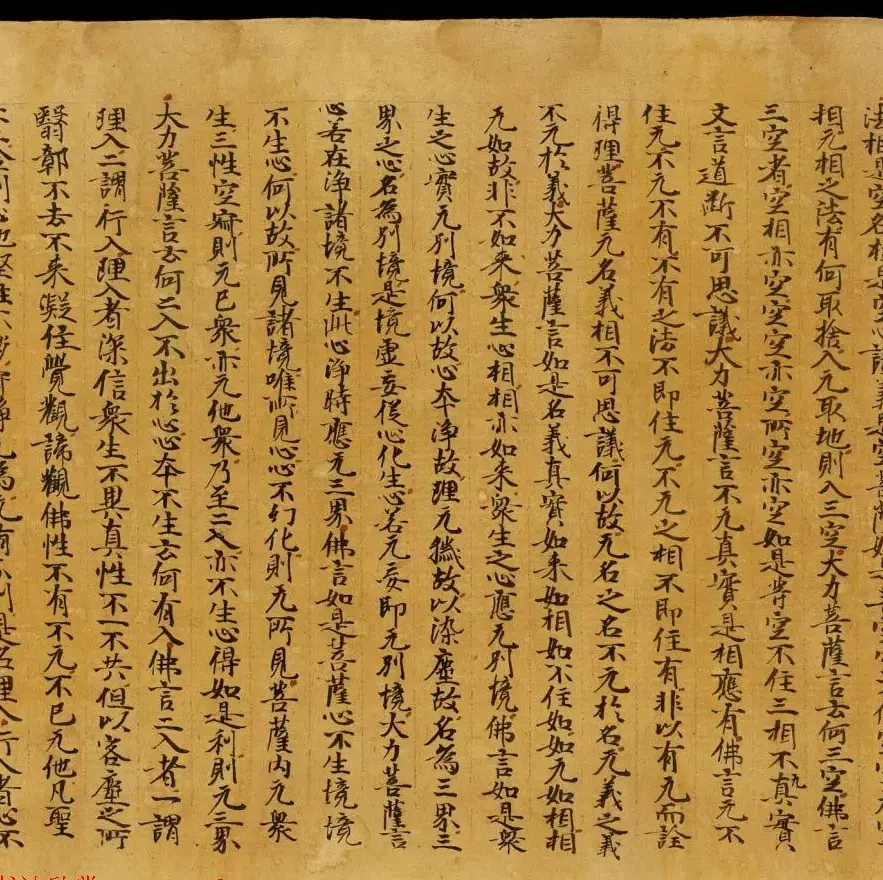 法相是空名相是空心識義是空菩薩如是等空
相无相之法有何取捨入无取地則入三空大力菩薩言云何三空佛言
三空者空相亦空空空亦空所空亦空如是等空不住三相不无真實
文言道断不可思議大力菩薩言不无真實是相應有佛言无不
住无不无不有不有之法不即住无不无之相不即住有非以有无而詮
得理菩薩无名義相不可思議何以故无名之名不无於名无義之義
不无於義大力菩薩言如是名義真實如来如相如不住如如无如相相
无如故非不如来衆生心相相亦如来衆生之心應无別境佛言如是衆
生之心實无別境何以故心本淨故理无穢故以染塵故名為三界三
界之心名為別境是境虛妄從心化生心若无妄即无別境大力菩薩言
心若在淨諸境不生此心淨時應无三界佛言如是菩薩心不生境境
不生心何以故所見諸境唯所見心心不幻化則无所見菩薩内无衆
生三性空寂則无己衆亦无他衆乃至二入亦不生心得如是利則无三界
大力菩薩言云何二入不出於心心本不生云何有入佛言二入者一謂
理入二謂行入理入者深信衆生不異真性不一不共但以客塵之所
翳鄣不去不来凝住覺觀諦觀佛性不有不无不己无他凡聖
不二金剛心地堅住不移寂靜无為无有分別是名理入行入者心不